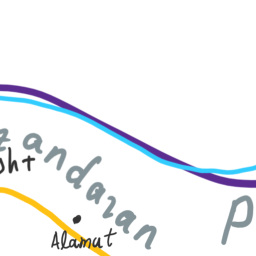 zandaran
sht
Alamut
P